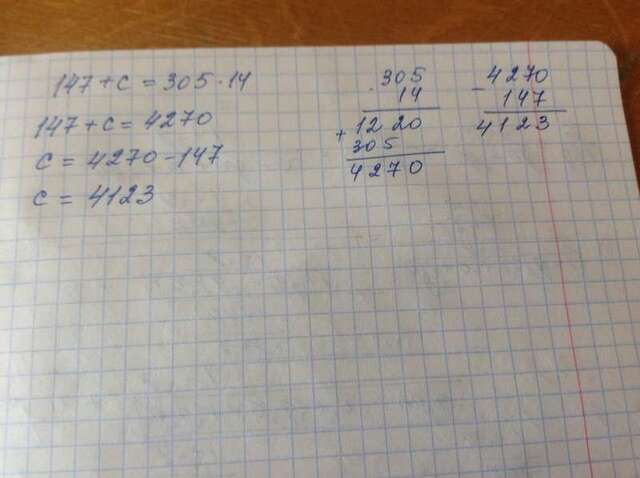 147 + c = 305 · 14
147 + c = 4270
c = 4270 - 147
c = 4123
· 305
14
+ 1220
305
4270
- 4270
147
4123